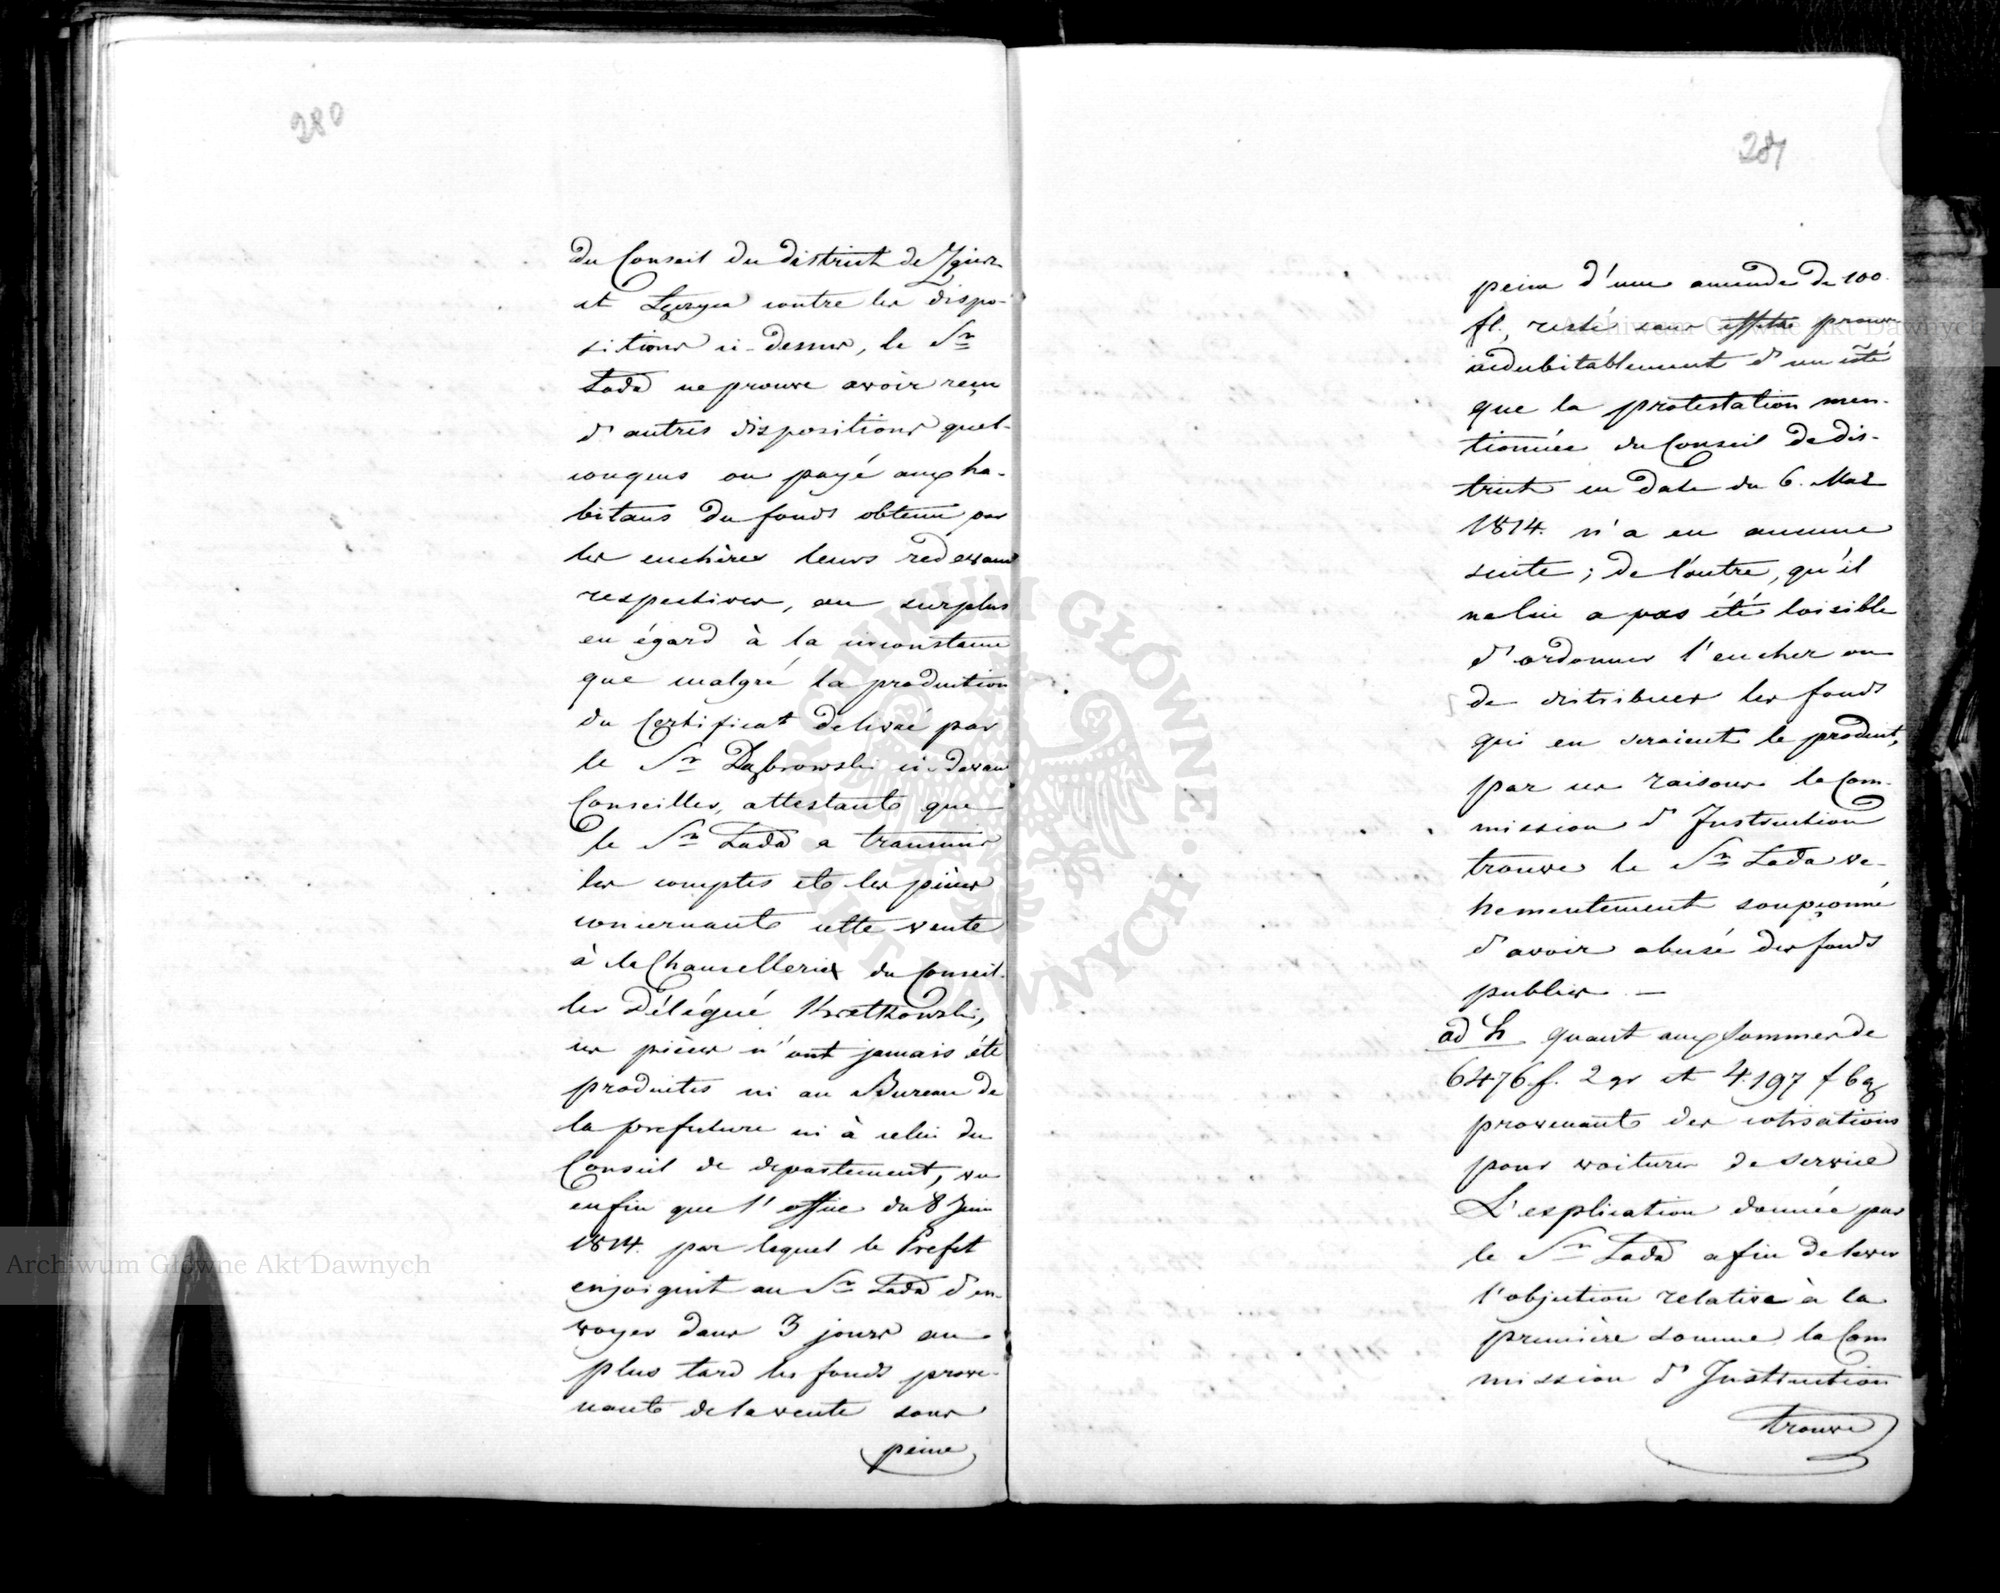 280
du Conseil du district de Zgierz
et Łęczyca contre les dispo-
sitions ci-dessus, le Sr
Łada ne prouve avoir reçu
d'autres dispositions quel-
conques ou payé aux ha-
bitans du fonds obtenu par
les enchères leurs redevan
respectives, au surplus
eu égard à la circonstance
que malgré la production
du Certificat delivré par
le Sr Dąbrowski ci-devan
Conseiller, attestants que
le Sr Łada a transmis
les comptes et les pièces
concernants cette vente
à la Chancellerie du Conseil-
ler Délégué Kretkowski,
ces pièces n'ont jamais été
produites ni au Bureau de
la prefecture ni à celui du
Conseil de departement, vu
enfin que l'office du 8 Juin
1814. par lequel le Prefet
enjoignit au Sr Łada d'en-
voyer dans 3 jours au
plus tard les fonds prove-
nants de la vente sous
peine
281
peine d'une amende de 100.
fl., resté sans effet prouve
indubitablement d'un côté
que la protestation men-
tionnée du Conseil de dis-
trict en date du 6. Mai
1814. n'a eu aucune
suite; de l'autre, qu'il
ne lui a pas été loisible
d'ordonner l'encher ou
de distribuer les fonds
qui en seraient le produit,
par ces raisons la Com-
mission d'Instruction
trouve le Sr Łada ve-
hementement soupçonné
d'avoir abusé des fonds
publics. —
ad h quant aux sommes de
6476 f. 2 gr et 4.197 f 6 g
provenants des cotisations
pour voitures de service
L'explication donnée par
le Sr Łada afin de lever
l'objection relative à la
première somme, la Com
mission d'Instruction
trouve
Archiwum Główne Akt Dawnych
Archiwum Główne Akt Dawnych
ARCHIWUM GŁÓWNE AKT DAWNYCH